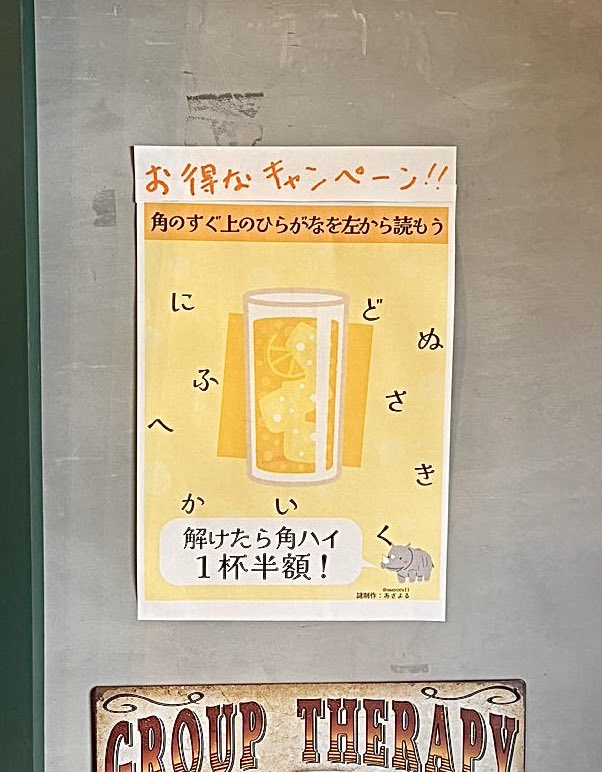 お得なキャンペーン!!
角のすぐ上のひらがなを左から読もう
に
ど
ぬ
ふ
さ
へ
き
か
い
く
解けたら角ハイ
1杯半額！
謎制作：あさよる
GROUP THERAPY